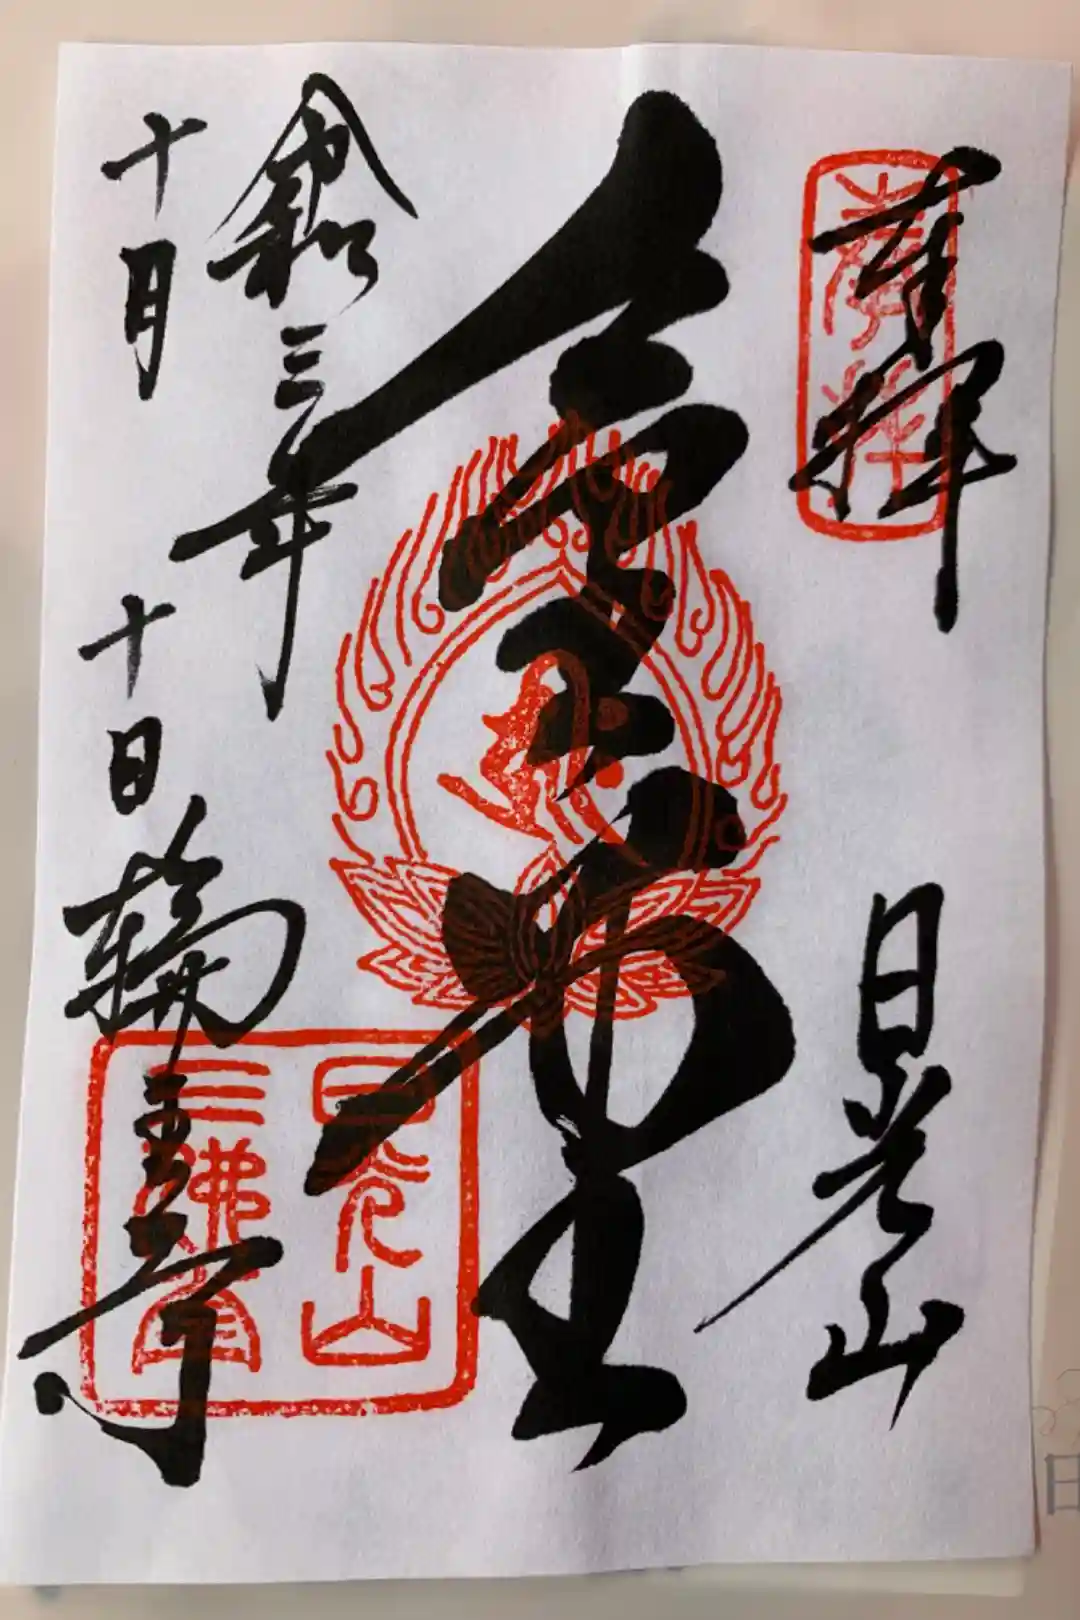 奉拝
奉拝
日光山
令和三年
十月十日
輪王寺
日光山
三佛堂